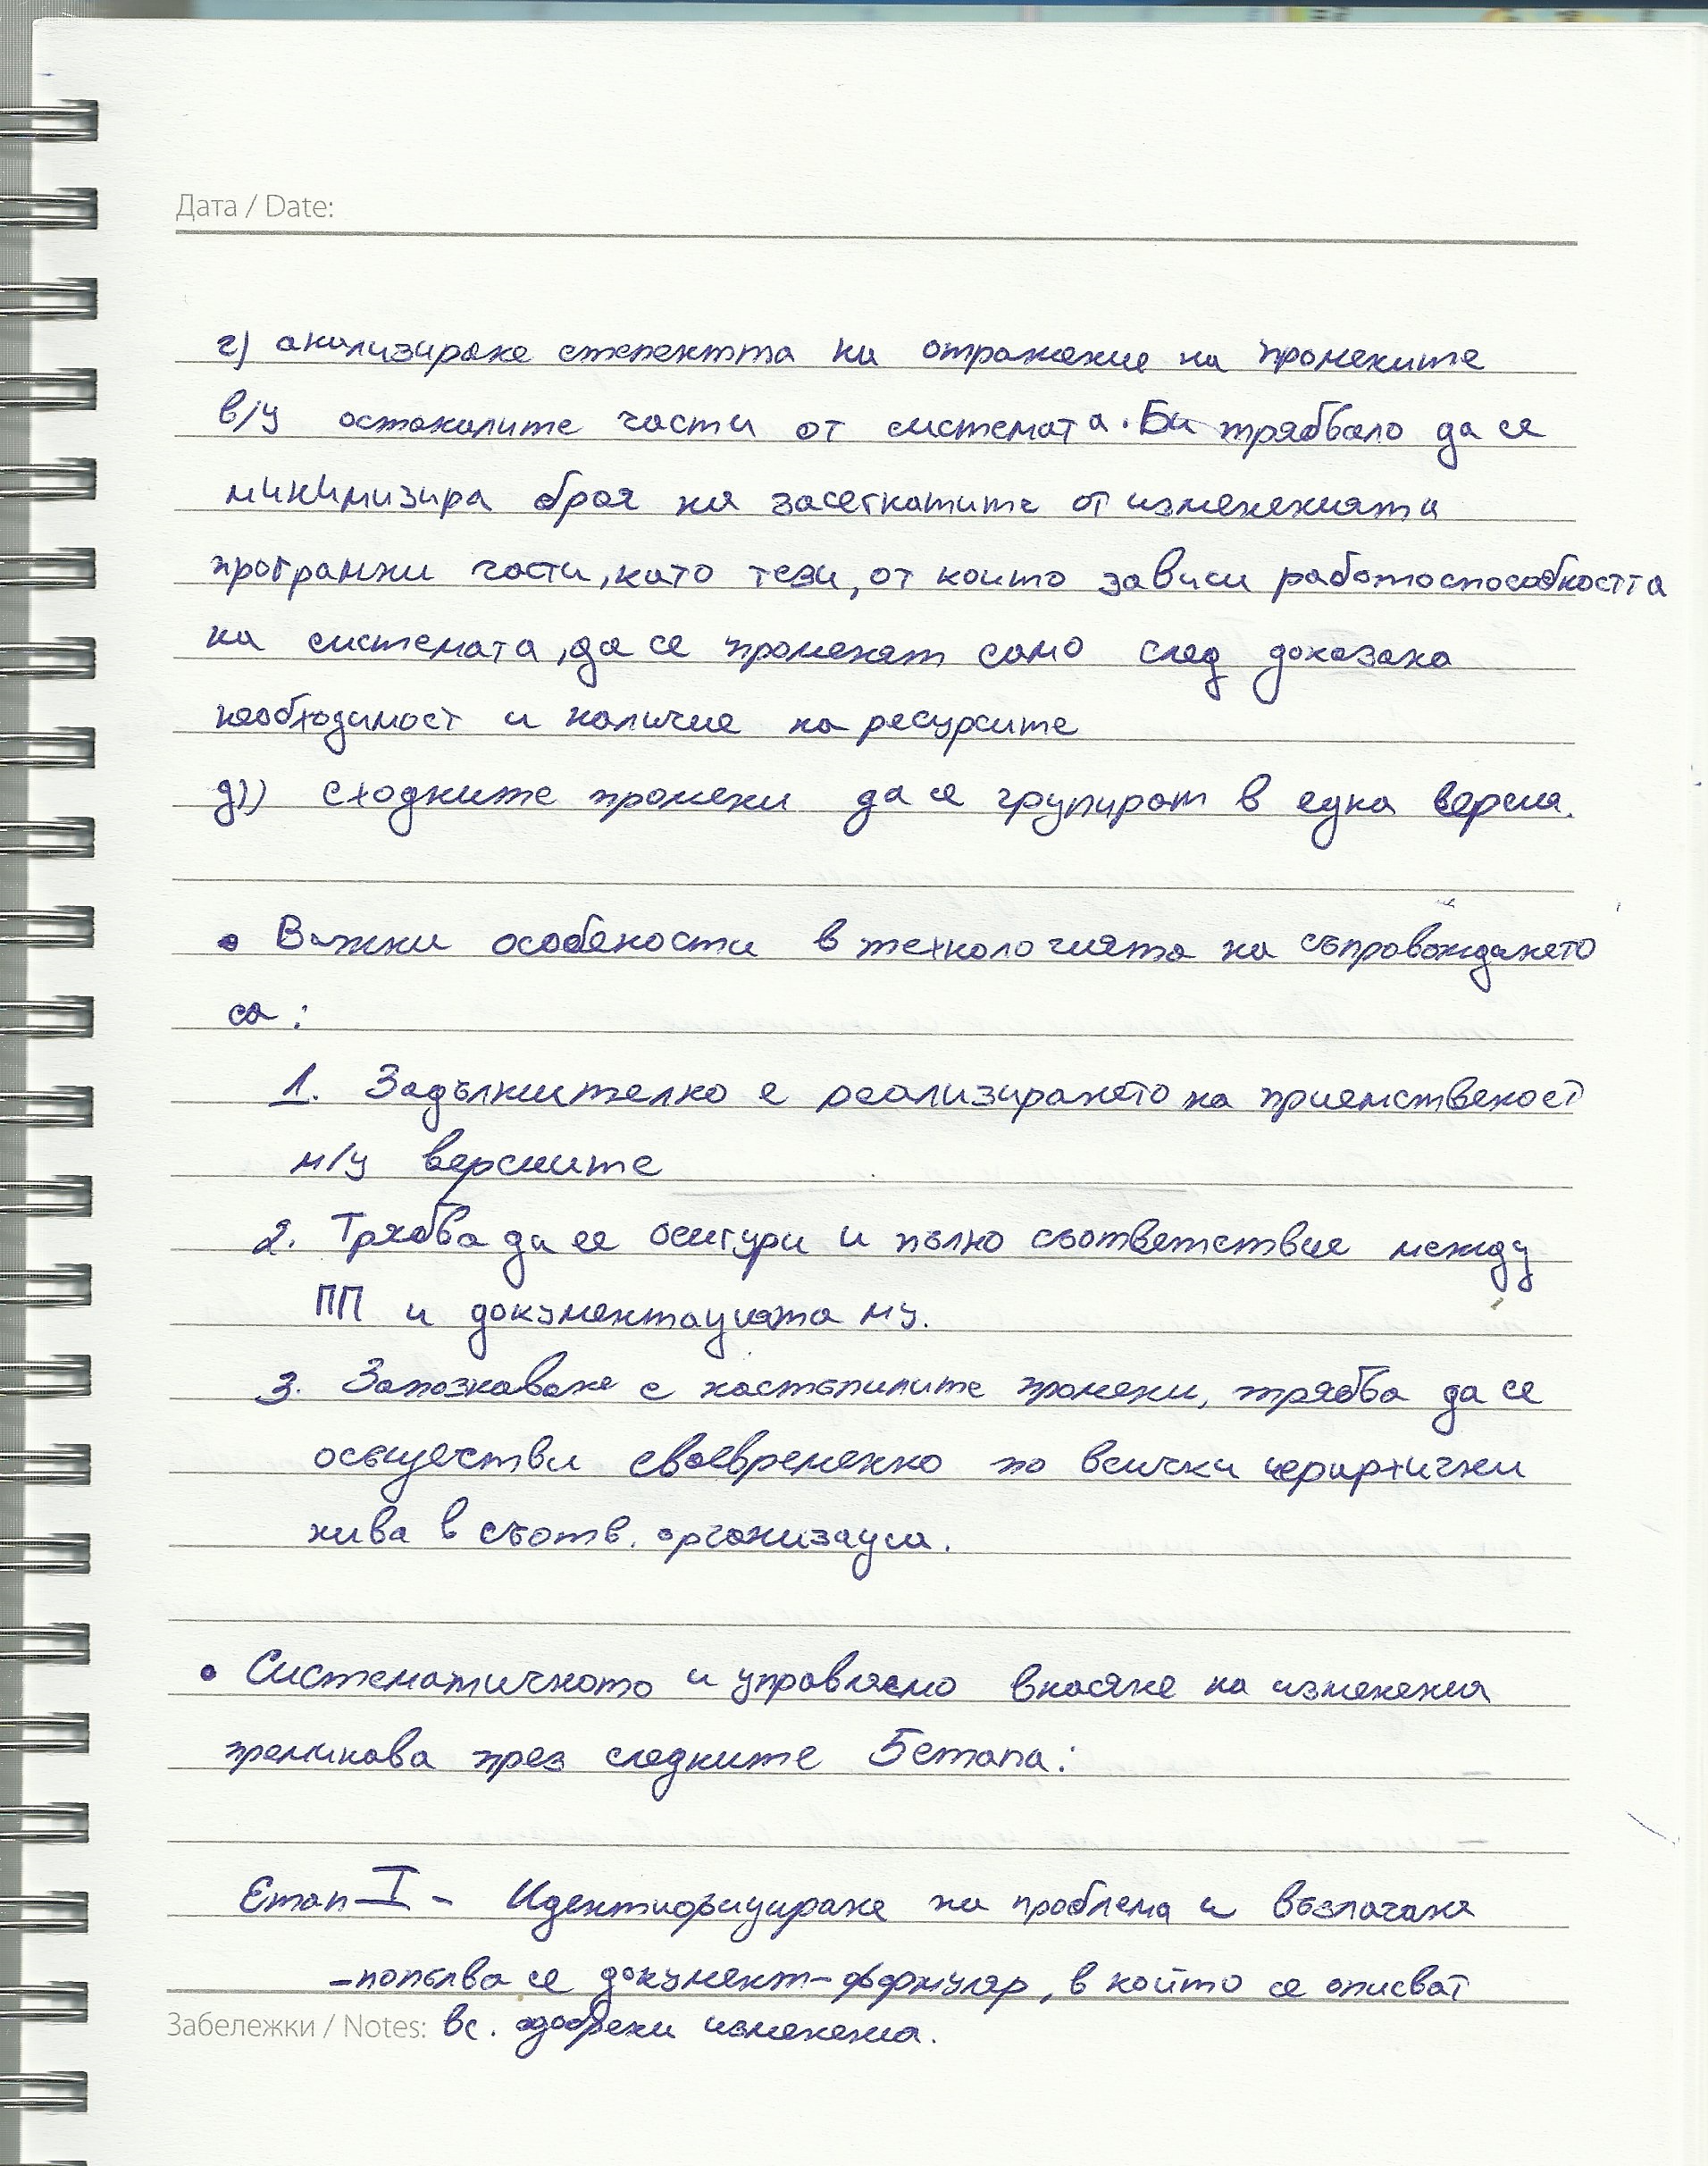 Дата / Date:
г) анализиране степентта на отражение на промените
в/у останалите части от системата. Би трябвало да се
минимизира броя на засегнатите от измененията
програмни части, като тези, от които зависи работоспособността
на системата, да се променят само след доказана
необходимост и наличие на ресурсите
д)) сходните промени да се групират в една версия.
• Важни особености в технологията на съпровождането
са:
1. Задължително е реализирането на приемственост
м/у версиите
2. Трябва да се осигури и пълно съответствие между
ПП и документацията му.
3. Запознаване с настъпилите промени, трябва да се
осъществи своевременно по всички иерархични
нива в съотв. организация.
• Систематичното и управляемо внасяне на изменения
преминава през следните 5 етапа:
Етап I - Идентифициране на проблема и възлагане
- попълва се документ-формуляр, в който се описват
Забележки / Notes: вс. одобрени изменения.